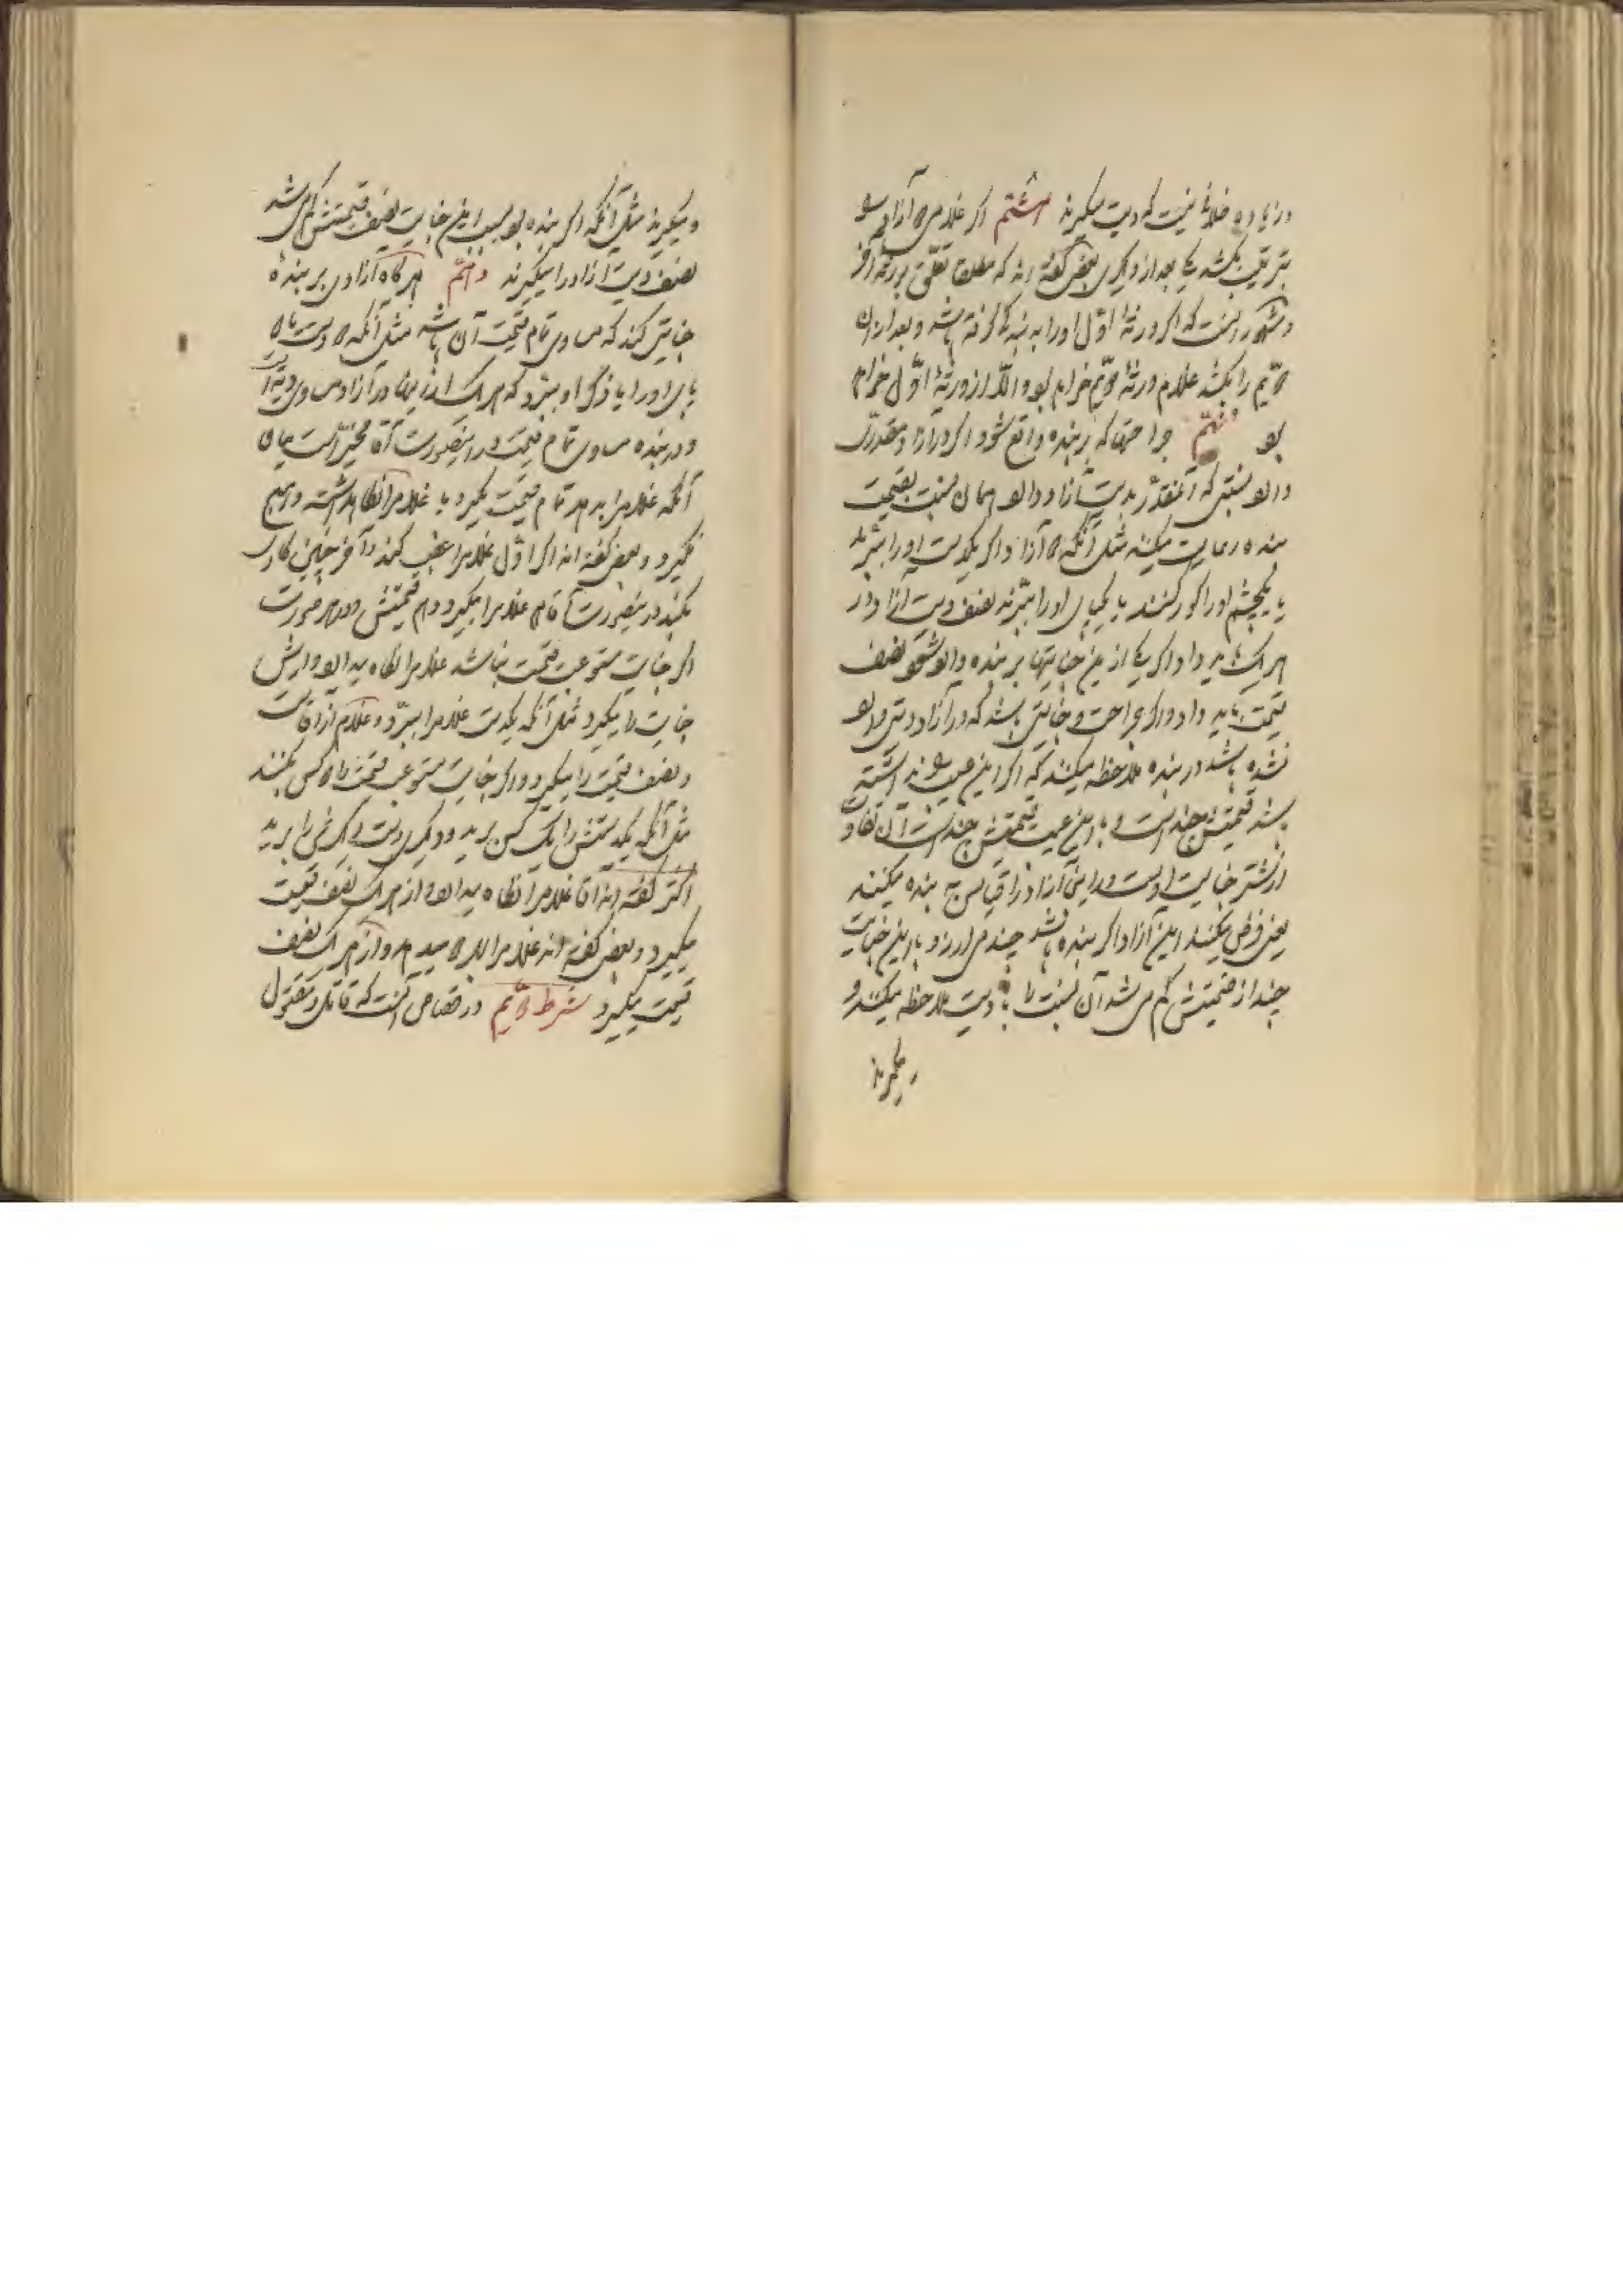 در زیاده خلافی نیست که دیت میگیرند هشتم اگر غلامی دو آزاد را
بترتیب بکشد یکی بعد از دیگری بعضی گفته اند که مطلقا تعلق بورثه آخر
و مشهور آنست که اگر ورثه اول او را به بندگی گرفته باشد و بعد از آن
دویم را بکشد غلام ورثه دویم خواهد بود و الا از ورثه اول خواهد
بود نهم جراحتها که بر بنده واقع شود اگر در آزاد مقدریست
دارد نسبتی که آنمقدر بدیت آزاد دارد همان نسبت بقیمت
بنده رعایت میکنند مثل آنکه در آزاد اگر یکدست او را ببرند
یا یکچشم او را کور کنند یا یکپای او را ببرند نصف دیت آزاد در
هر یک باید داد اگر یکی از این جنایتها بر بنده وارد شود نصف
قیمت باید داد و اگر جراحت و جنایتی باشد که در آزاد دیتی وارد
نشده باشد در بنده ملاحظه میکنند که اگر این عیب را نداشته
باشد قیمتش چند است و با این عیب قیمتش چند است آن تفاوت
ارش جنایت اوست و در این آزاد را قیاس به بنده میکنند
یعنی فرض میکنند این آزاد اگر بنده باشد چند می ارزد و با این جنایت
چند از قیمتش کم می شد آن نسبت را با دیت ملاحظه میکنند و
میگیرند
و میگیرند مثل آنکه اگر بنده بود بسبب این جنایت نصف قیمتش کم می شد
نصف دیت آزاد را میگیرند دهم هر گاه آزادی بر بنده
جنایتی کند که مساوی تمام قیمت آن باشد مثل آنکه دو دست یا دو
پای او را یا ذکر او را ببرد که هر یک از اینها در آزاد مساوی دیت است
و در بنده مساوی تمام قیمت در اینصورت آقا مخیر است میان
آنکه غلام را بدهد و تمام قیمت بگیرد یا غلام را نگاه داشته و هیچ
نگیرد و بعضی گفته اند اگر اول غلام را غصب کند و آخر چنین کاری
بکند در اینصورت آقا هم غلام را بگیرد و هم قیمتش و در هر صورت
اگر جنایت مستوعب قیمت نباشد غلام را نگاه میدارد و ارش
جنایت را میگیرد مثل آنکه یکدست غلام را ببرد و غلام از آقاست
و نصف قیمت را میگیرد و اگر جنایت مستوعب قیمت را دو کس بکنند
مثل آنکه یکدستش را یک کس برید و دیگر دست دیگرش را برید
اکثر گفته اند آقا غلام را نگاه میدارد و از هر یک نصف قیمت
میگیرد و بعضی گفته اند غلام را بهر دو میدهد و از هر یک نصف
قیمت میگیرد شرط دویم در قصاص آنست که قاتل و مقتول